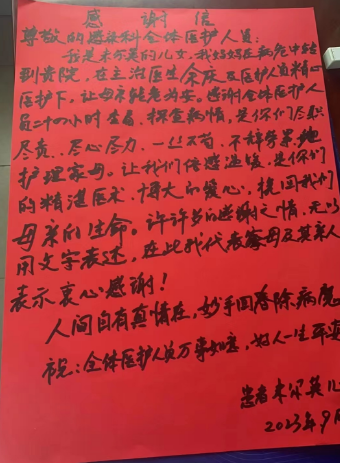 感谢信
尊敬的感染科全体医护人员：
我是朱尔英的儿女，我妈妈在病危中转
到贵院，在主治医生余庆及医护人员精心
医护下，让母亲转危为安。感谢全体医护人
员二十四小时 探查病情，是你们尽职
尽责、尽心尽力、一丝不苟、不辞劳累地
护理家母。让我们体感温暖，是你们
的精湛医术、博大的爱心，挽回我们
母亲的生命。许许多多的感谢之情，无以
用文字表述，在此我代表家母及其亲人
表示衷心感谢！
人间自有真情在，妙手回春除病魔
祝：全体医护人员万事如意，好人一生平安
患者朱尔英儿
2023年9月